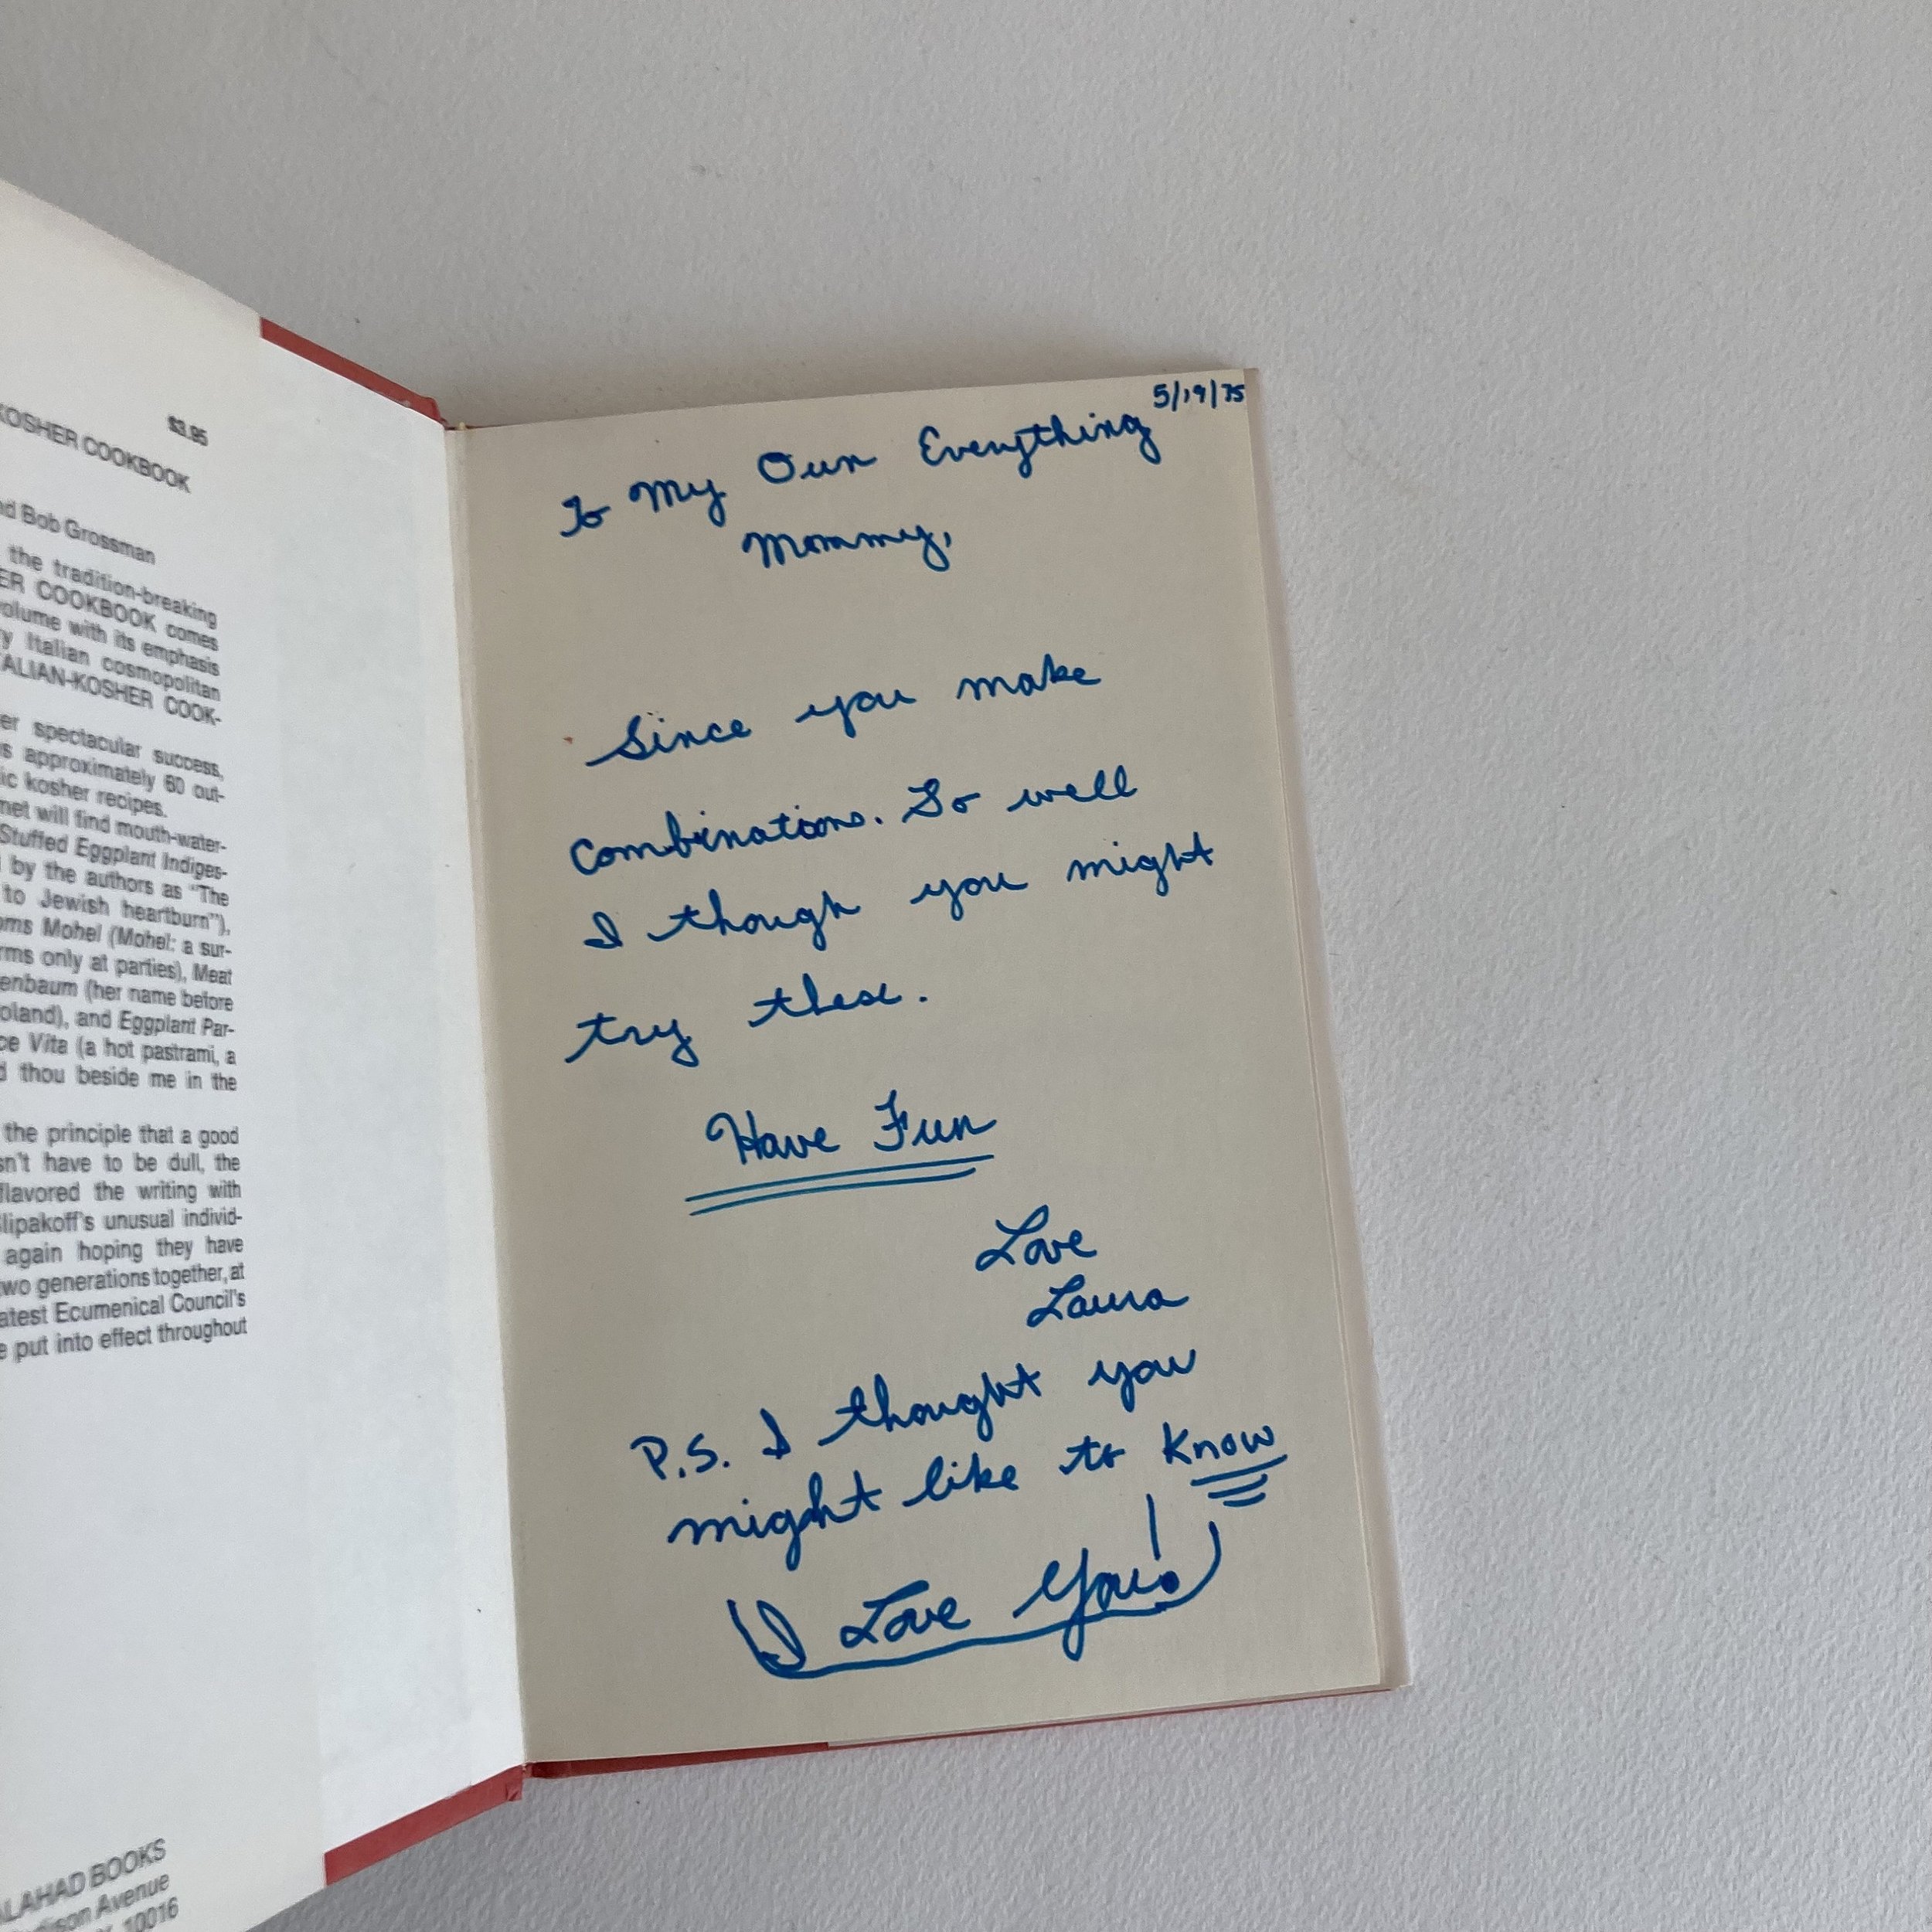 $3.95
KOSHER COOKBOOK
nd Bob Grossman
the tradition-breaking
ER COOKBOOK comes
volume with its emphasis
y Italian cosmopolitan
TALIAN-KOSHER COOK-
er spectacular success,
s approximately 60 out-
ic kosher recipes.
met will find mouth-water-
Stuffed Eggplant Indiges-
by the authors as "The
to Jewish heartburn"),
oms Mohel (Mohel: a sur-
rms only at parties), Meat
enbaum (her name before
oland), and Eggplant Par-
ce Vita (a hot pastrami, a
d thou beside me in the
the principle that a good
sn't have to be dull, the
flavored the writing with
lipakoff's unusual individ-
again hoping they have
two generations together, at
atest Ecumenical Council's
e put into effect throughout
ALAHAD BOOKS
dison Avenue
10016
5/19/75
To My Own Everything
Mommy,
Since you make
Combinations. So well
I though you might
try these.
Have Fun
Love
Laura
P.S. I thought you
might like to know
I Love You!